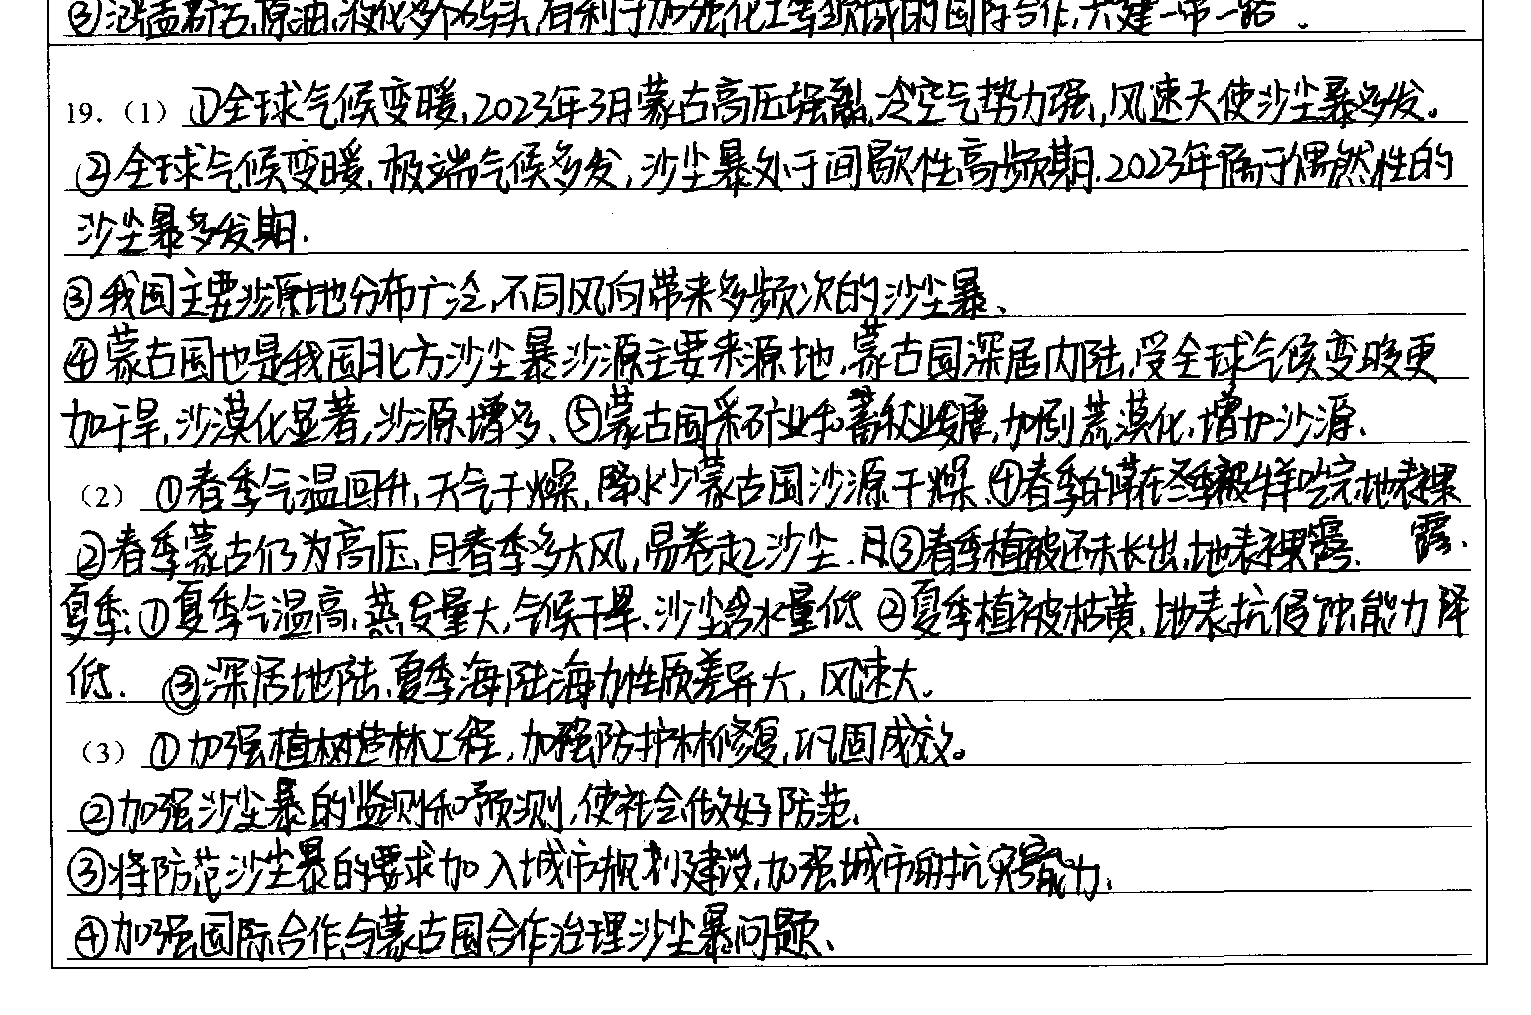 ③涵盖矿石,原油,液化多个码头,有利于加强化工等领域的国际合作,共建一带一路.
19.(1)①全球气候变暖,2023年3月蒙古高压强烈,冷空气势力强,风速大使沙尘暴多发。
②全球气候变暖,极端气候多发,沙尘暴处于间歇性高频期.2023年属于偶然性的
沙尘暴多发期.
③我国主要沙源地分布广泛,不同风向带来多频次的沙尘暴、
④蒙古国也是我国北方沙尘暴沙源主要来源地,蒙古国深居内陆,受全球气候变暖更
加干旱,沙漠化显著,沙源增多、⑤蒙古国采矿业和畜牧业发展,加剧荒漠化,增加沙源.
(2)①春季气温回升,天气干燥,降水少蒙古国沙源干燥.④春季的草在冬季被羊吃完,地表裸
②春季蒙古仍为高压,且春季多大风,易卷起沙尘.③春季植被还未长出,地表裸露. 露.
夏季:①夏季气温高,蒸发量大,气候干旱、沙尘含水量低 ②夏季植被枯黄,地表抗侵蚀能力降
低. ③深居地陆,夏季海陆海力性质差异大,风速大。
(3)①加强植树造林工程,加强防护林修复,巩固成效。
②加强沙尘暴的监测和预测,使社会做好防范.
③将防范沙尘暴的要求加入城市规划建设,加强城市的抗灾害能力.
④加强国际合作,与蒙古国合作治理沙尘暴问题、